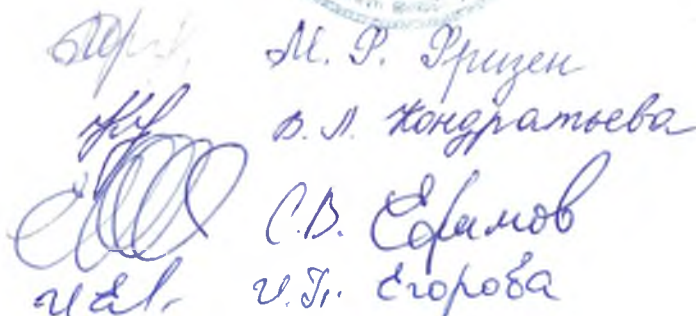 М. Р. Фризен
В. Л. Кондратьева
С.В. Ефимов
И.П. Егорова